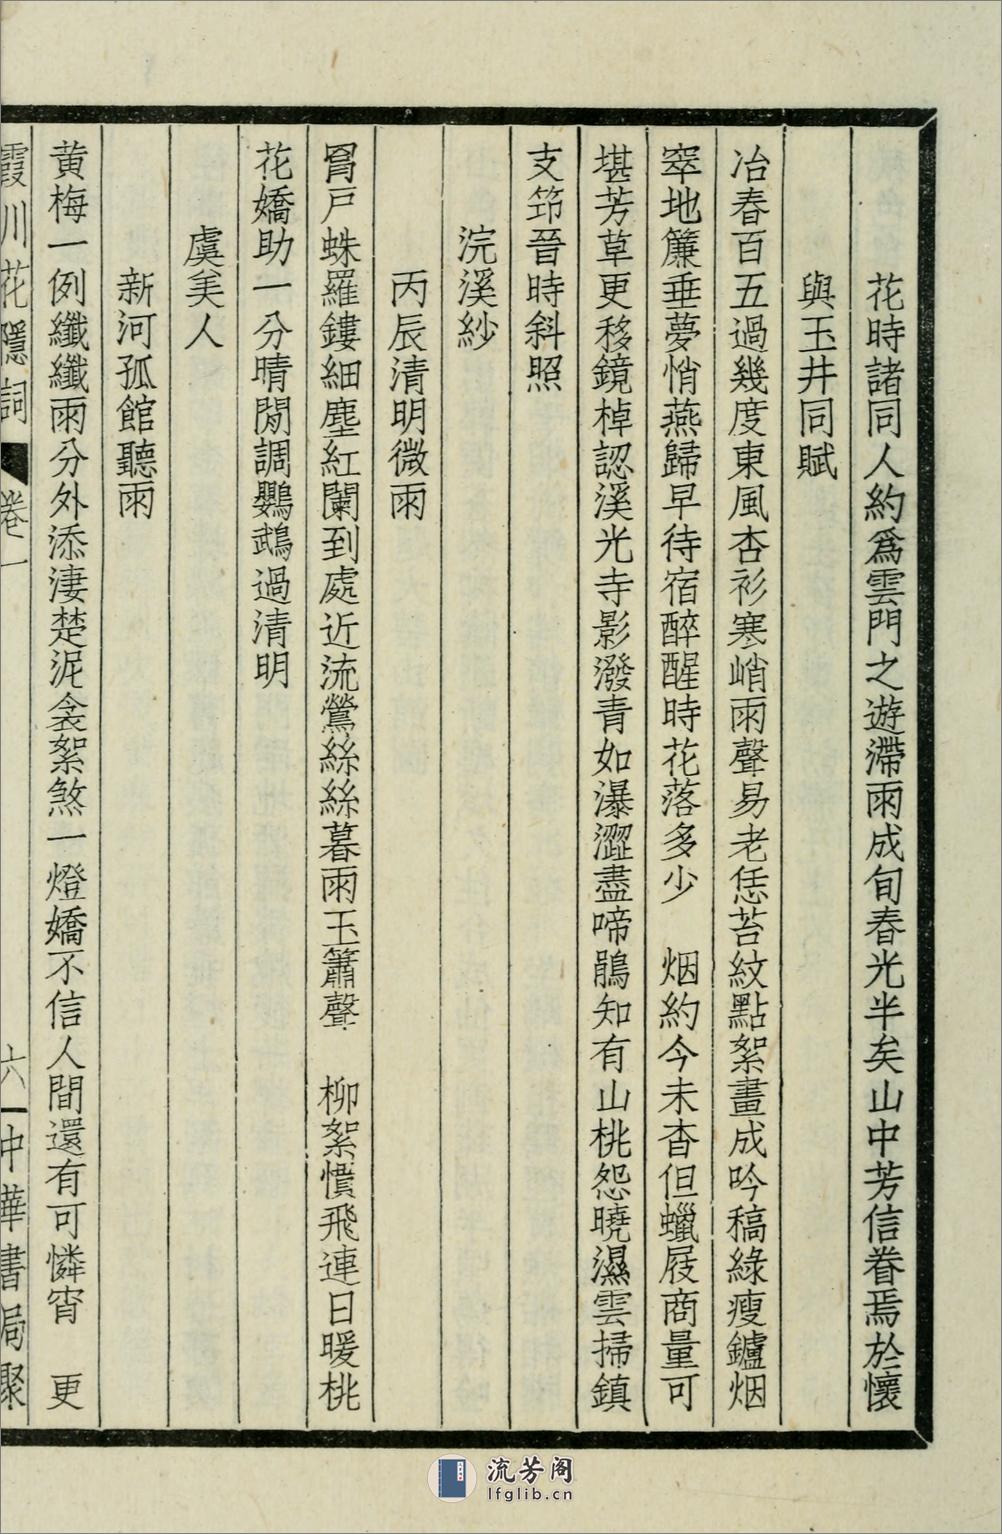 花時諸同人約爲雲門之遊滯雨成旬春光半矣山中芳信眷焉於懷
與玉井同賦
冶春百五過幾度東風杏衫寒峭雨聲易老恁苔紋點絮畫成吟稿綠瘦鑪烟
窣地簾垂夢悄燕歸早待宿醉醒時花落多少　烟約今未杳但蠟屐商量可
堪芳草更移鏡棹認溪光寺影潑青如瀑澀盡啼鵑知有山桃怨曉濕雲掃鎮
支笻晉時斜照
浣溪紗
丙辰清明微雨
罥戸蛛羅鏤細塵紅闌到處近流鶯絲絲暮雨玉簫聲　柳絮慣飛連日暖桃
花嬌助一分晴閒調鸚鵡過清明
虞美人
新河孤館聽雨
黃梅一例纖纖雨分外添淒楚泥衾絮煞一燈嬌不信人間還有可憐宵　更
霞川花隱詞　卷一　六　中華書局聚
流芳阁
lfglib.cn